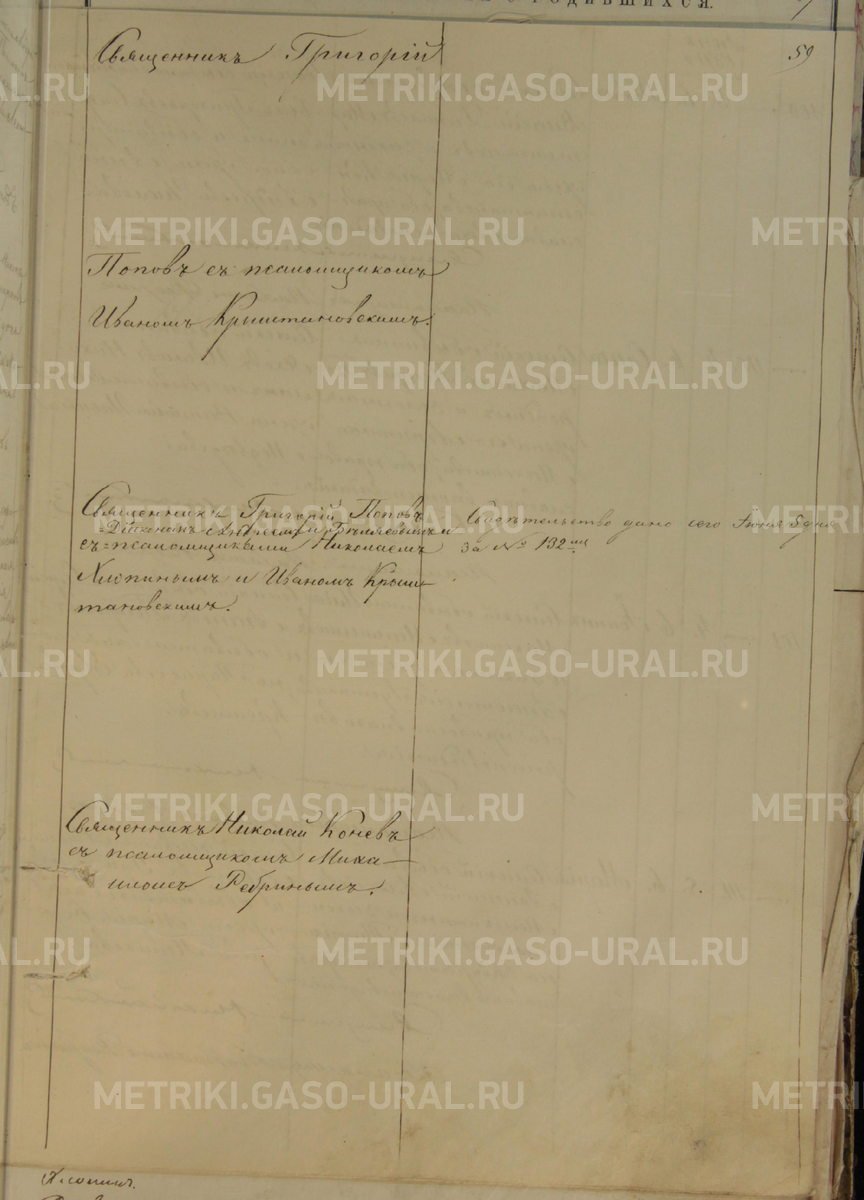 РОДИВШИХСЯ.
59
Священникъ Григорій
Поповъ съ псаломщикомъ
Иваномъ Крыштановскимъ.
Священникъ Григорій Поповъ
съ псаломщиками Николаемъ
Хлопинымъ и Иваномъ Крыш-
тановскимъ.
Свидѣтельство дано сего Іюня 5 дня
за № 132
Священникъ Николай Коневъ
съ псаломщикомъ Миха-
иломъ Ребринымъ.
METRIKI.GASO-URAL.RU